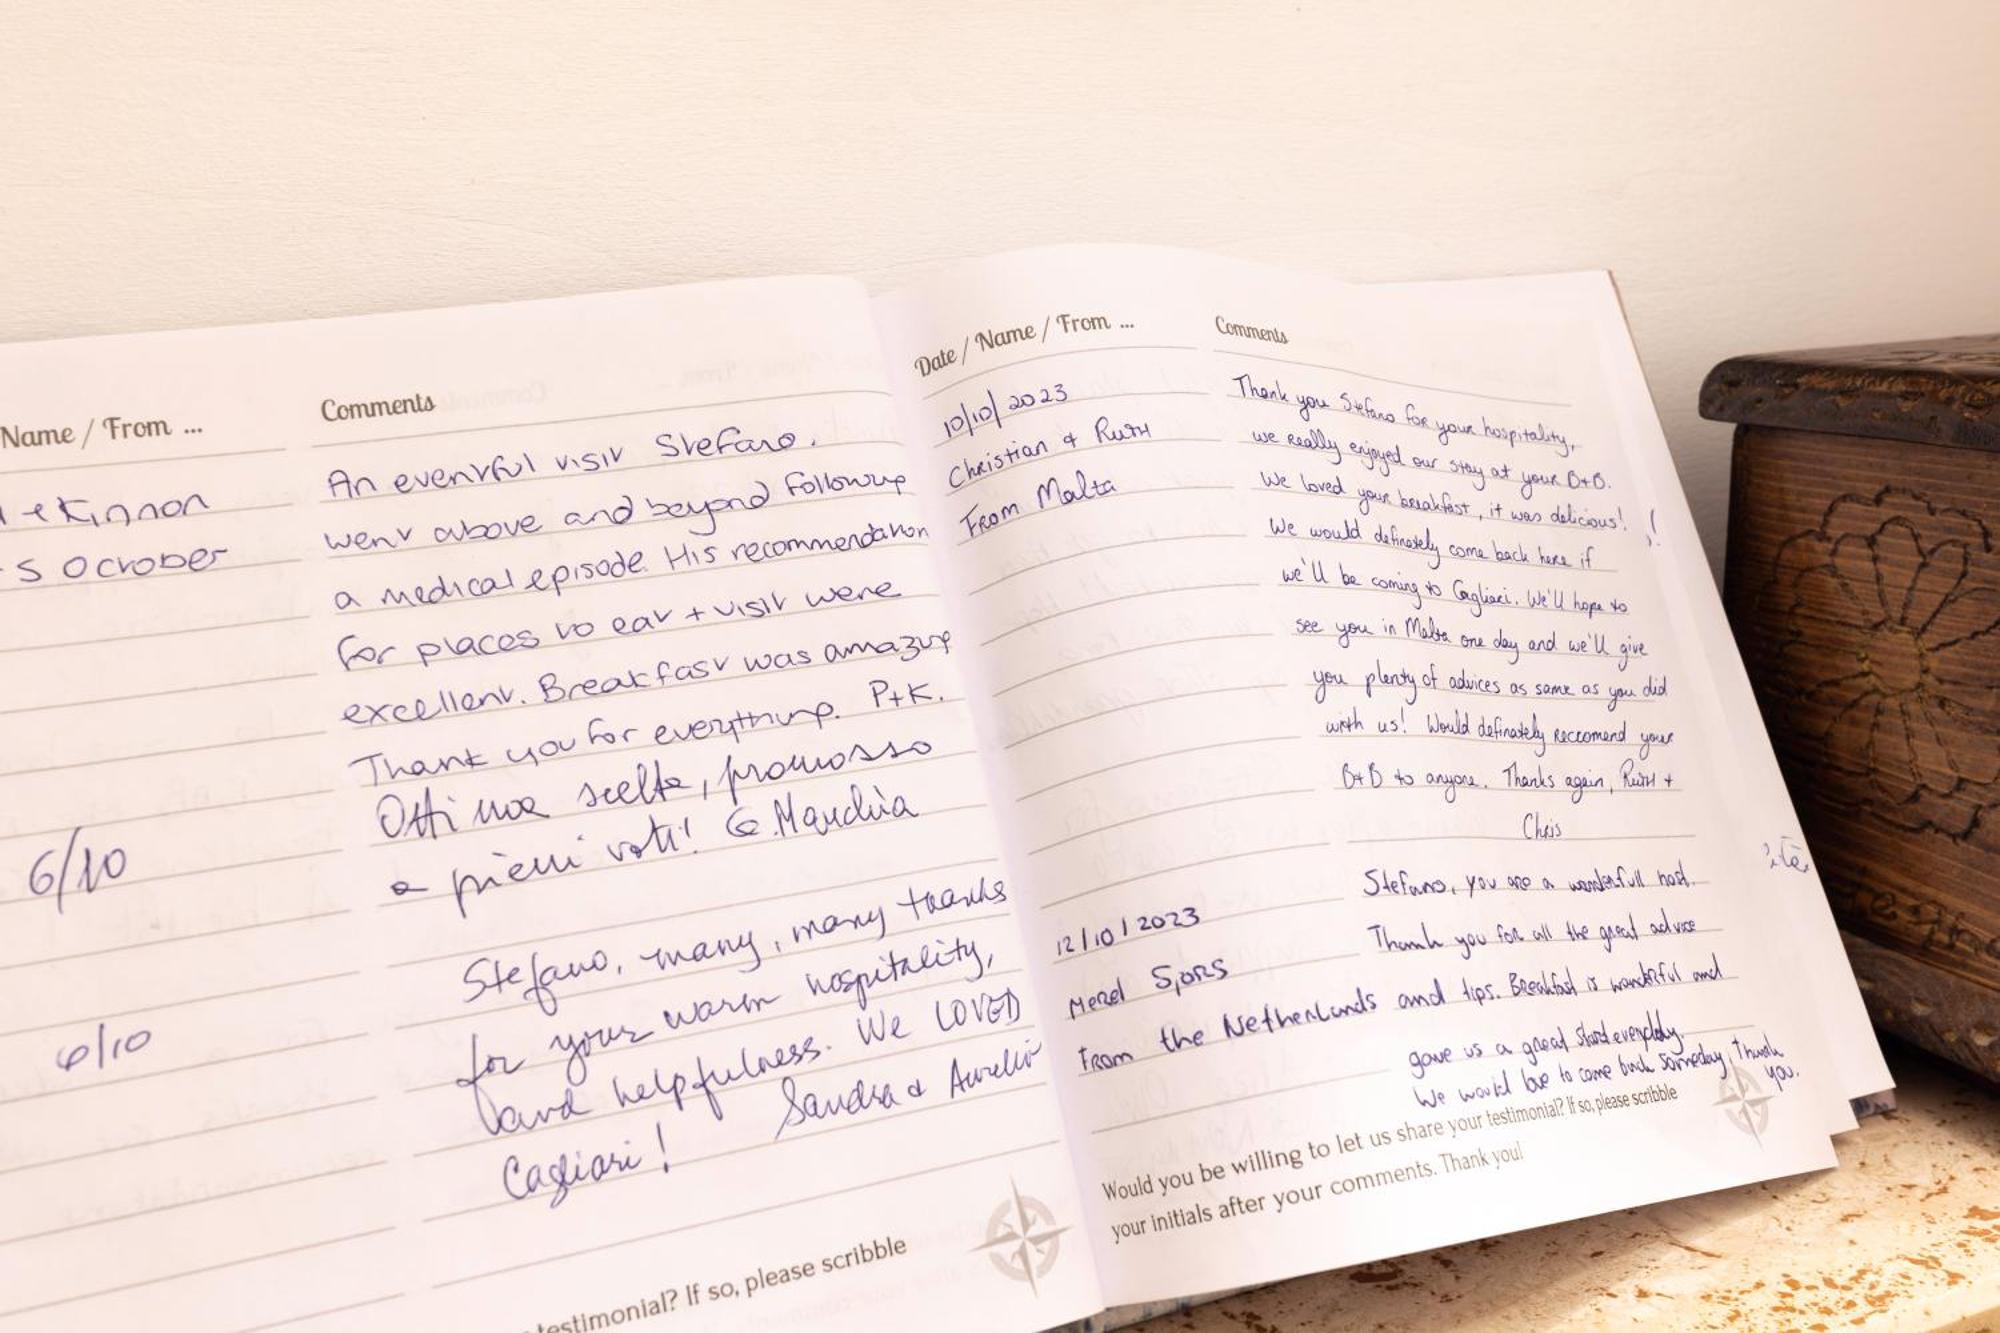 Name / From ...
Comments
Kinnon
5 October
An eventful visit Stefano.
went above and beyond following
a medical episode. His recommendation
for places to eat + visit were
excellent. Breakfast was amazing
Thank you for everything. P+K.
6/10
Ottima scelta, promosso
a pieni voti! G. Marchia
6/10
Stefano, many, many thanks
for your warm hospitality,
and helpfulness. We LOVED
Cagliari! Sandra & Aurelio
testimonial? If so, please scribble
Date / Name / From ...
Comments
10/10/2023
Christian & Ruth
From Malta
Thank you Stefano for your hospitality,
we really enjoyed our stay at your B+B.
We loved your breakfast, it was delicious!
We would definately come back here if
we'll be coming to Cagliari. We'll hope to
see you in Malta one day and we'll give
you plenty of advices as same as you did
with us! Would definately reccomend your
B+B to anyone. Thanks again, Ruth +
Chris
12/10/2023
Merel Sjors
From the Netherlands
Stefano, you are a wonderfull host.
Thank you for all the great advice
and tips. Breakfast is wonderful and
gave us a great start everyday.
We would love to come back someday, Thank
you.
Would you be willing to let us share your testimonial? If so, please scribble
your initials after your comments. Thank you!